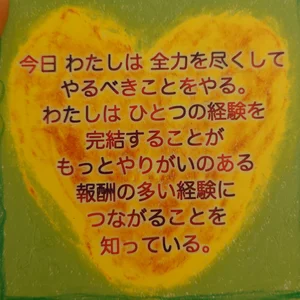 今日 わたしは 全力を尽くして
やるべきことをやる。
わたしは ひとつの経験を
完結することが
もっとやりがいのある
報酬の多い経験に
つながることを
知っている。